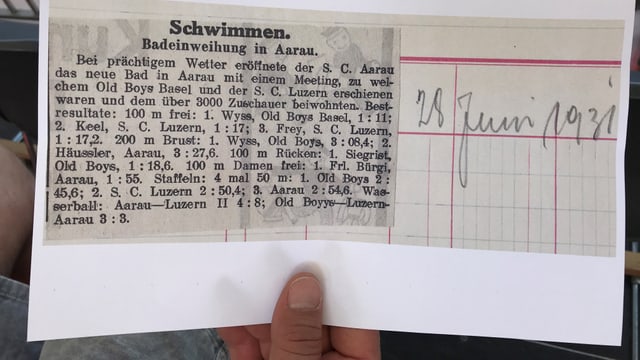 Schwimmen.
Badeinweihung in Aarau.
Bei prächtigem Wetter eröffnete der S. C. Aarau
das neue Bad in Aarau mit einem Meeting, zu wel-
chem Old Boys Basel und der S. C. Luzern erschienen
waren und dem über 3000 Zuschauer beiwohnten. Best-
resultate: 100 m frei: 1. Wyss, Old Boys Basel, 1 : 11;
2. Keel, S. C. Luzern, 1 : 17; 3. Frey, S. C. Luzern,
1 : 17,2. 200 m Brust: 1. Wyss, Old Boys, 3 : 08,4; 2.
Häussler, Aarau, 3 : 27,6. 100 m Rücken: 1. Siegrist,
Old Boys, 1 : 18,6. 100 m Damen frei: 1. Frl. Bürgi,
Aarau, 1 : 55. Staffeln: 4 mal 50 m: 1. Old Boys 2 :
45,6; 2. S. C. Luzern 2 : 50,4; 3. Aarau 2 : 54,6. Was-
serball: Aarau—Luzern II 4 : 8; Old Boyys—Luzern-
Aarau 3 : 3.
28 Juni 1931